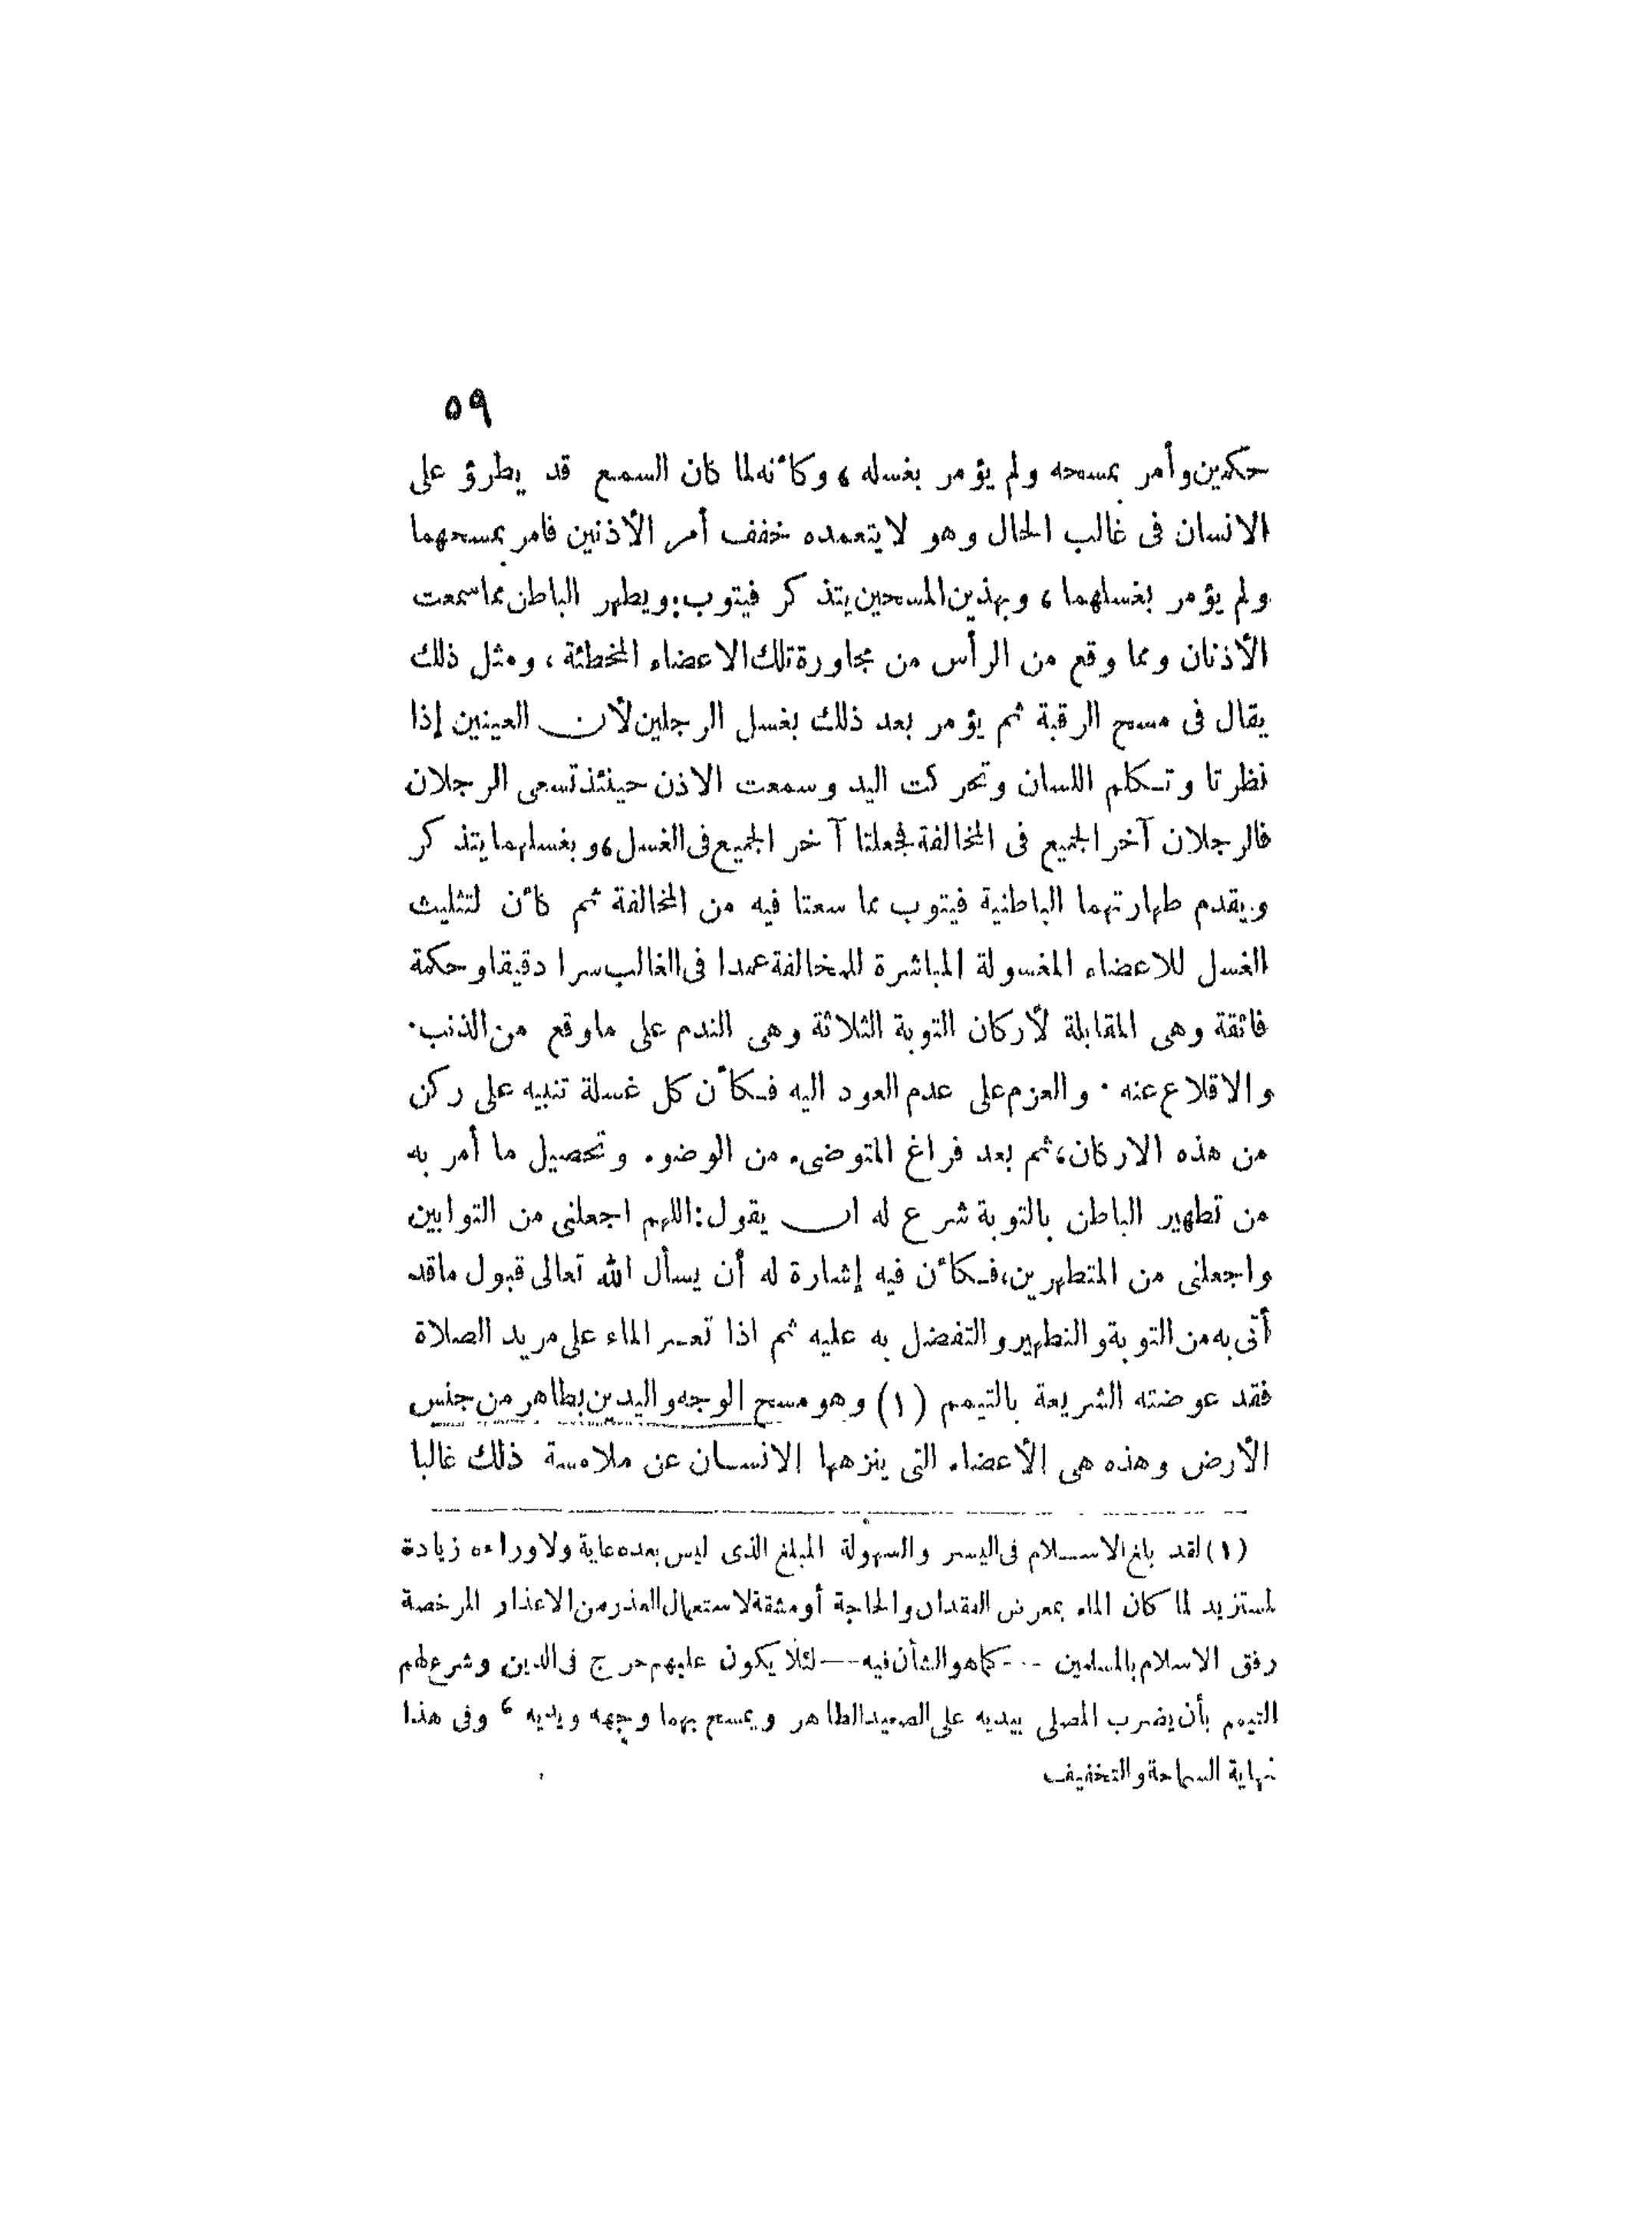 ٥٩
حكمين وأمر بمسحه ولم يؤمر بغسله ، وكأنه لما كان السمع قد يطرؤ على
الانسان فى غالب الحال وهو لا يتعمده خفف أمر الأذنين فامر بمسحهما
ولم يؤمر بغسلهما ، وبهذين المسحين يتذكر فيتوب : ويطهر الباطن مما سمعت
الأذنان ومما وقع من الرأس من مجاورة تلك الاعضاء المخطئة ، ومثل ذلك
يقال فى مسح الرقبة ثم يؤمر بعد ذلك بغسل الرجلين لأن العينين إذا
نظرتا وتكلم اللسان وتحركت اليد وسمعت الاذن حينئذ تسعى الرجلان
فالرجلان آخر الجميع فى المخالفة فجعلتا آخر الجميع فى الغسل ، وبغسلهما يتذكر
ويقدم طهارتهما الباطنية فيتوب مما سعتا فيه من المخالفة ثم كأن لتثليث
الغسل للاعضاء المغسولة المباشرة للمخالفة عمدا فى الغالب سرا دقيقا وحكمة
فائقة وهى المقابلة لأركان التوبة الثلاثة وهى الندم على ما وقع من الذنب .
والاقلاع عنه . والعزم على عدم العود اليه فكأن كل غسلة تنبيه على ركن
من هذه الاركان ، ثم بعد فراغ المتوضىء من الوضوء وتحصيل ما أمر به
من تطهير الباطن بالتوبة شرع له ان يقول : اللهم اجعلنى من التوابين
واجعلنى من المتطهرين ، فكأن فيه إشارة له أن يسأل الله تعالى قبول ما قد
أتى به من التوبة والتطهير والتفضل به عليه ثم اذا تعسر الماء على مريد الصلاة
فقد عوضته الشريعة بالتيمم (١) وهو مسح الوجه واليدين بطاهر من جنس
الأرض وهذه هى الأعضاء التى ينزهها الانسان عن ملامسة ذلك غالبا
(١) لقد بلغ الاسلام فى اليسر والسهولة المبلغ الذى ليس بعده غاية ولا وراءه زيادة
لمستزيد لما كان الماء بمعرض الفقدان والحاجة أو مشقة لاستعمال العذر من الاعذار المرخصة
رفق الاسلام بالمسلمين — كما هو الشأن فيه — لئلا يكون عليهم حرج فى الدين وشرع لهم
التيمم بأن يضرب المصلى بيديه على الصعيد الطاهر ويمسح بهما وجهه ويديه ، وفى هذا
نهاية السماحة والتخفيف